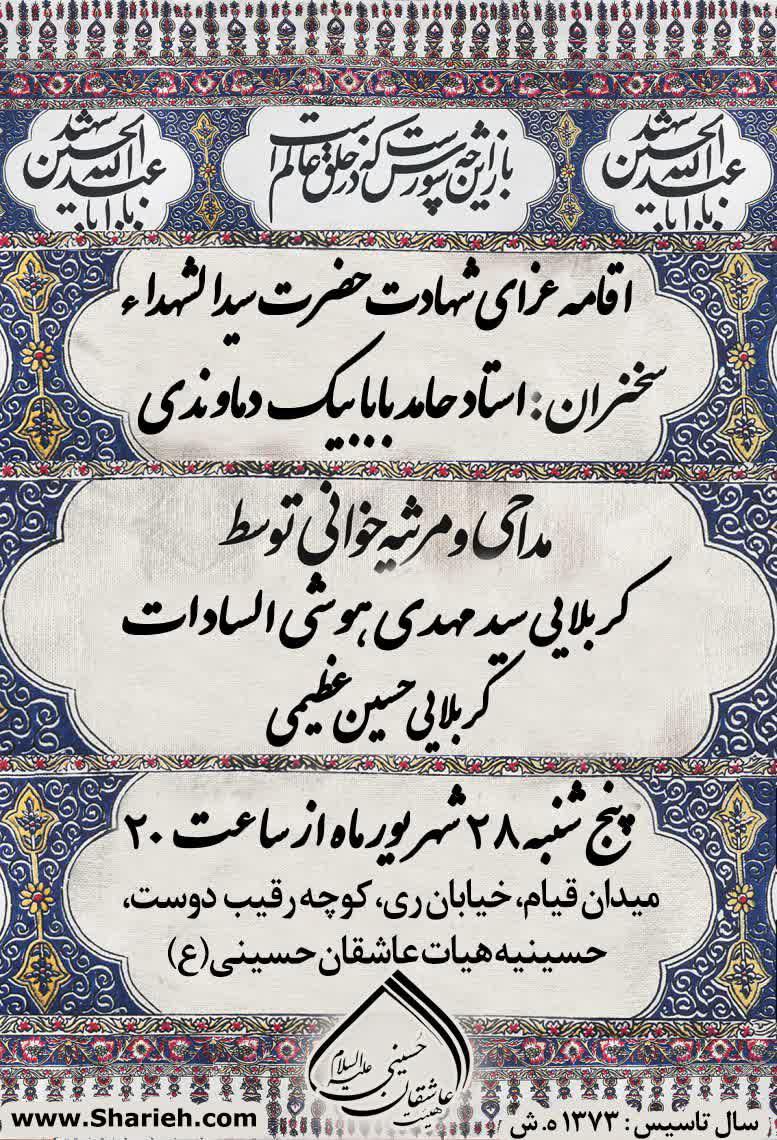 شهید
عبدالله الحسین
یا ابا
باز این چه شورش است که در خلق عالم است
شهید
عبدالله الحسین
یا ابا
اقامه عزای شهادت حضرت سیدالشهداء
سخنران: استاد حامد بابابیک دماوندی
مداحی و مرثیه خوانی توسط
کربلایی سید مهدی هوشی السادات
کربلایی حسین عظیمی
پنج شنبه ۲۸ شهریور ماه از ساعت ۲۰
میدان قیام، خیابان ری، کوچه رقیب دوست،
حسینیه هیات عاشقان حسینی(ع)
هیئت عاشقان حسینی علیه السلام
سال تاسیس: ۱۳۷۳ ه.ش
www.Sharieh.com